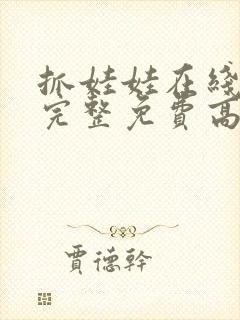 抓娃娃在线
完整免费高
贾德干